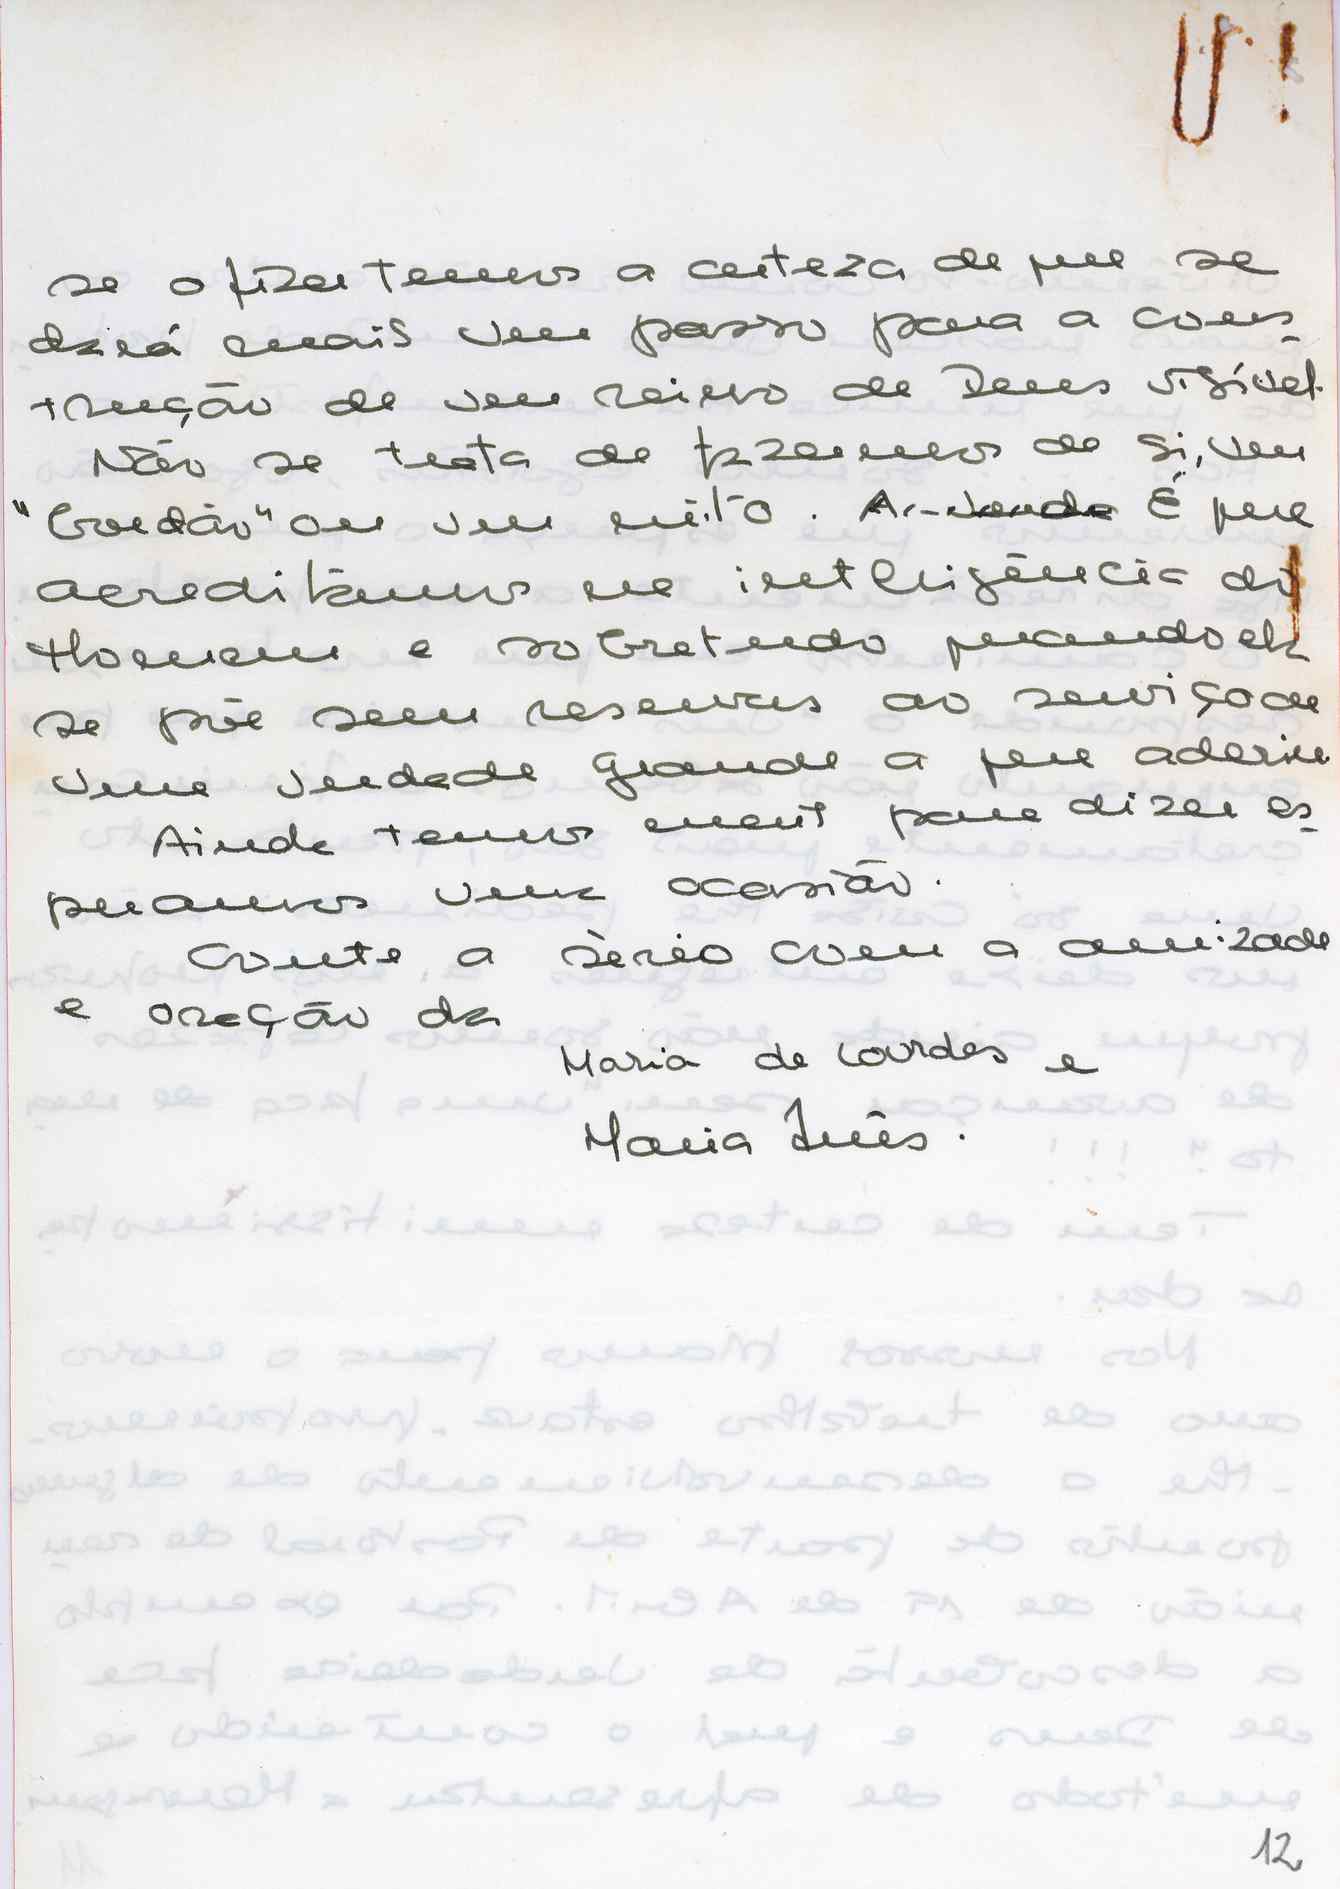 se o fizer temos a certeza de que se
dará mais um passo para a cons-
trução de um reino de Deus visível.
Não se trata de fazermos de si, um
"bordão" ou um mito. É que
acreditamos na inteligência do
Homem e sobretudo quando ele
se põe sem reservas ao serviço de
uma verdade grande a que aderiu
Ainda temos para dizer es-
peramos uma ocasião.
Conte a sério com a amizade
e oração da
Maria de Lourdes e
Maria Inês.
12